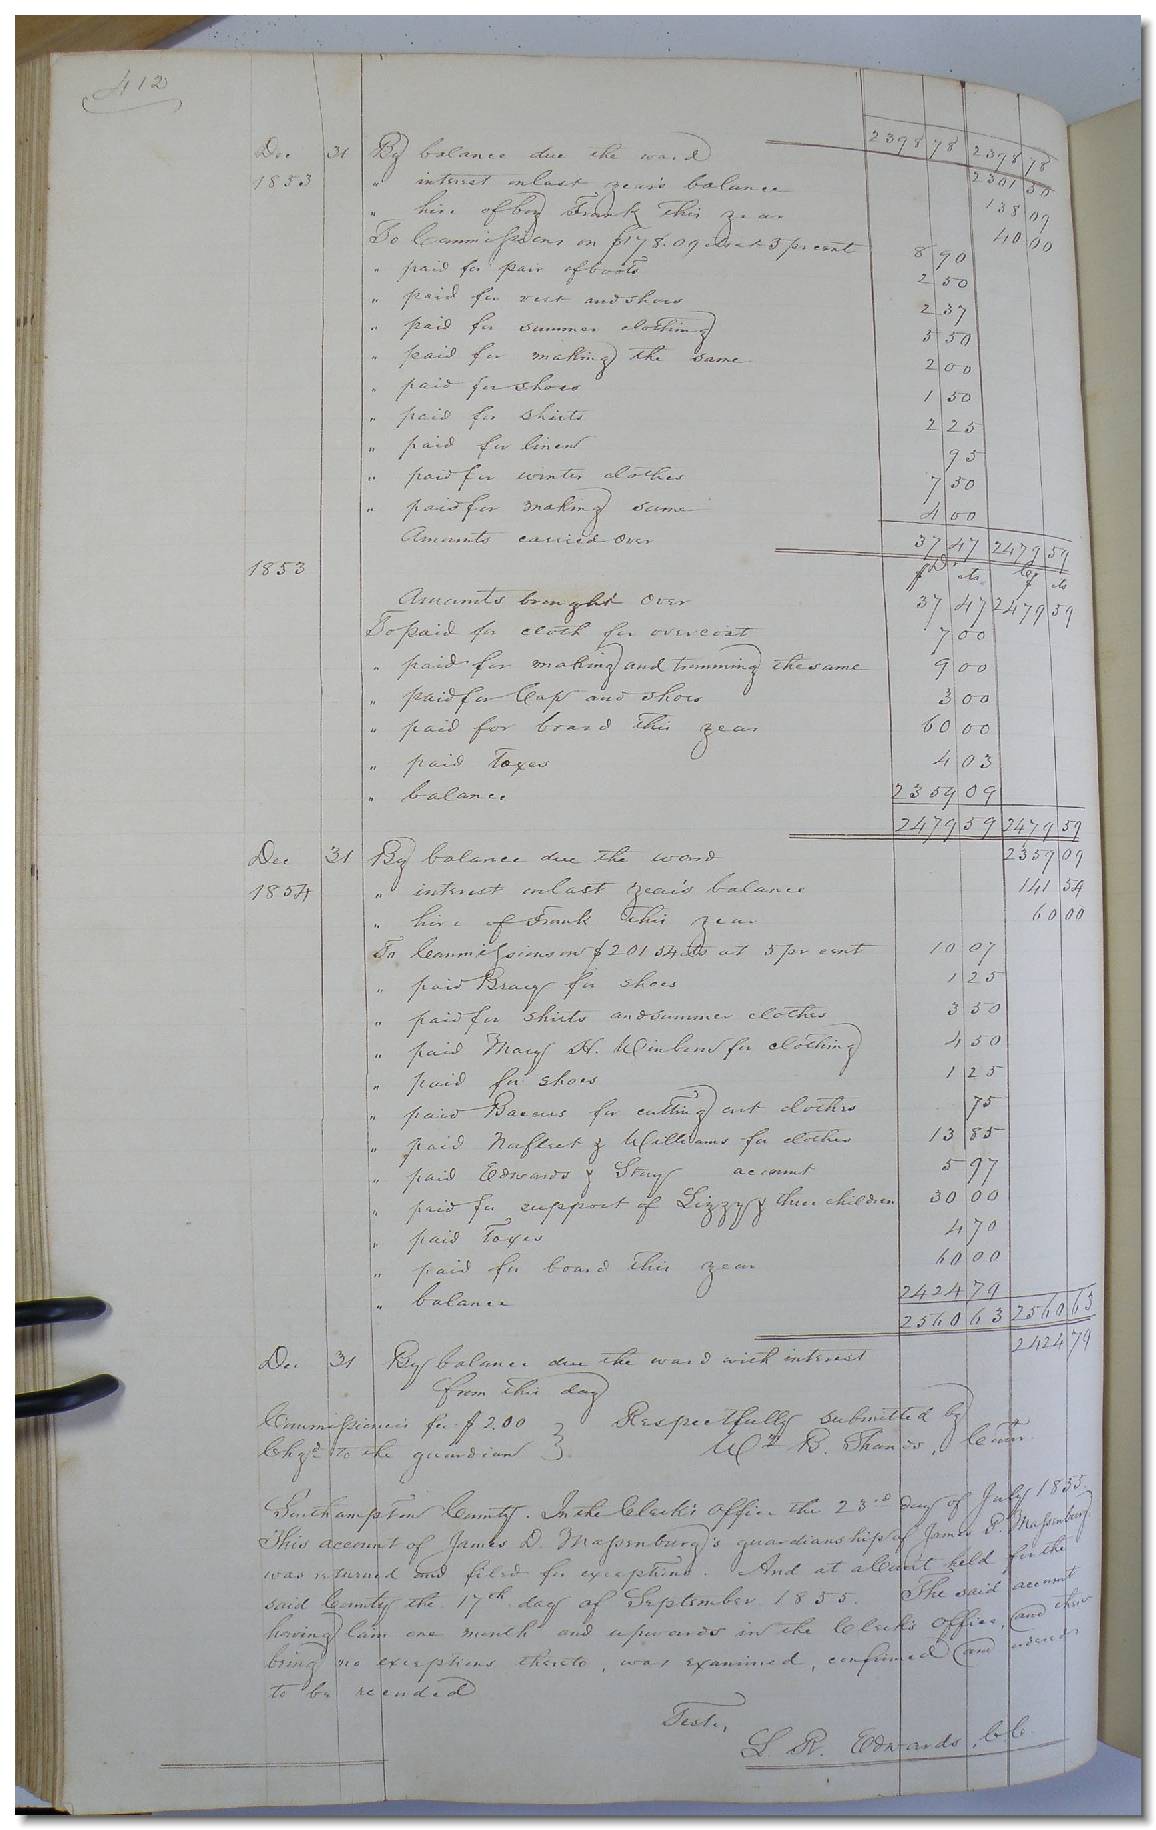 412
2398 78 2398 78
Dec 31 By balance due the ward 2301 50
1853 " interest on last year's balance 138 09
" hire of boy Frank this year 40 00
To Commissions on $178.09 cts at 5 pr cent 8 90
" paid for pair of boots 2 50
" paid for vest and shoes 2 37
" paid for summer clothing 5 50
" paid for making the same 2 00
" paid for shoes 1 50
" paid for shirts 2 25
" paid for linen 95
" paid for winter clothes 7 50
" paid for making same 4 00
Amounts carried over 37 47 2479 59
1853 $ cts $ cts
Amounts brought over 37 47 2479 59
To paid for cloth for overcoat 7 00
" paid for making and trimming the same 9 00
" paid for Cap and shoes 3 00
" paid for board this year 60 00
" paid Taxes 4 03
" balance 2359 09
2479 59 2479 59
Dec 31 By balance due the ward 2359 09
1854 " interest on last year's balance 141 54
" hire of Frank this year 60 00
To Commissions on $201 54 cts at 5 pr cent 10 07
" paid Bracy for shoes 1 25
" paid for shirts and summer clothes 3 50
" paid Mary H. for clothing 4 50
" paid for shoes 1 25
" paid for cutting out clothes 75
" paid Norfleet & Williams for clothes 13 85
" paid Edwards & Gray account 5 97
" paid for support of Lizzy & three children 30 00
" paid Taxes 4 70
" paid for board this year 60 00
" balance 2424 79
2560 63 2560 63
Dec 31 By balance due the ward with interest 2424 79
from this day
Commissioners fee $2.00 } Respectfully submitted by
Chgd to the guardian } Wm B. Shands, Comr.
Southampton County. In the Clerk's Office the 23rd day of July 1855.
This account of James D. Massenburg's guardianship of James P. Massenburg
was returned and filed for exceptions. And at a Court held for the
said County the 17th day of September 1855. The said account
having lain one month and upwards in the Clerk's Office, and there
being no exceptions thereto, was examined, confirmed and ordered
to be recorded
Teste,
L. R. Edwards, C.C.